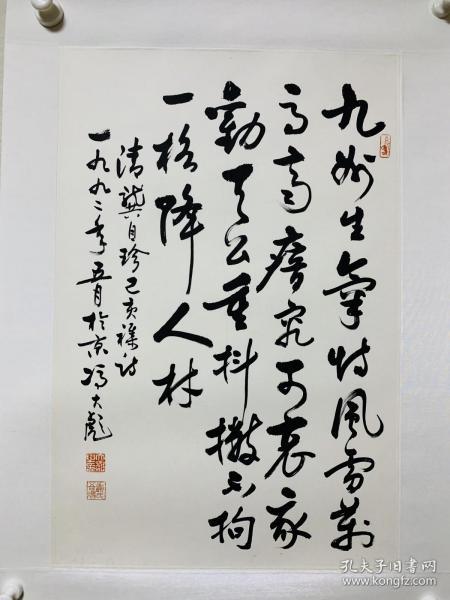 九州生氣恃風雷萬
馬齊瘖究可哀我
勸天公重抖擻不拘
一格降人材
清龔自珍己亥雜詩
一九九二年五月於京馮大彪
孔夫子旧书网
www.kongfz.com